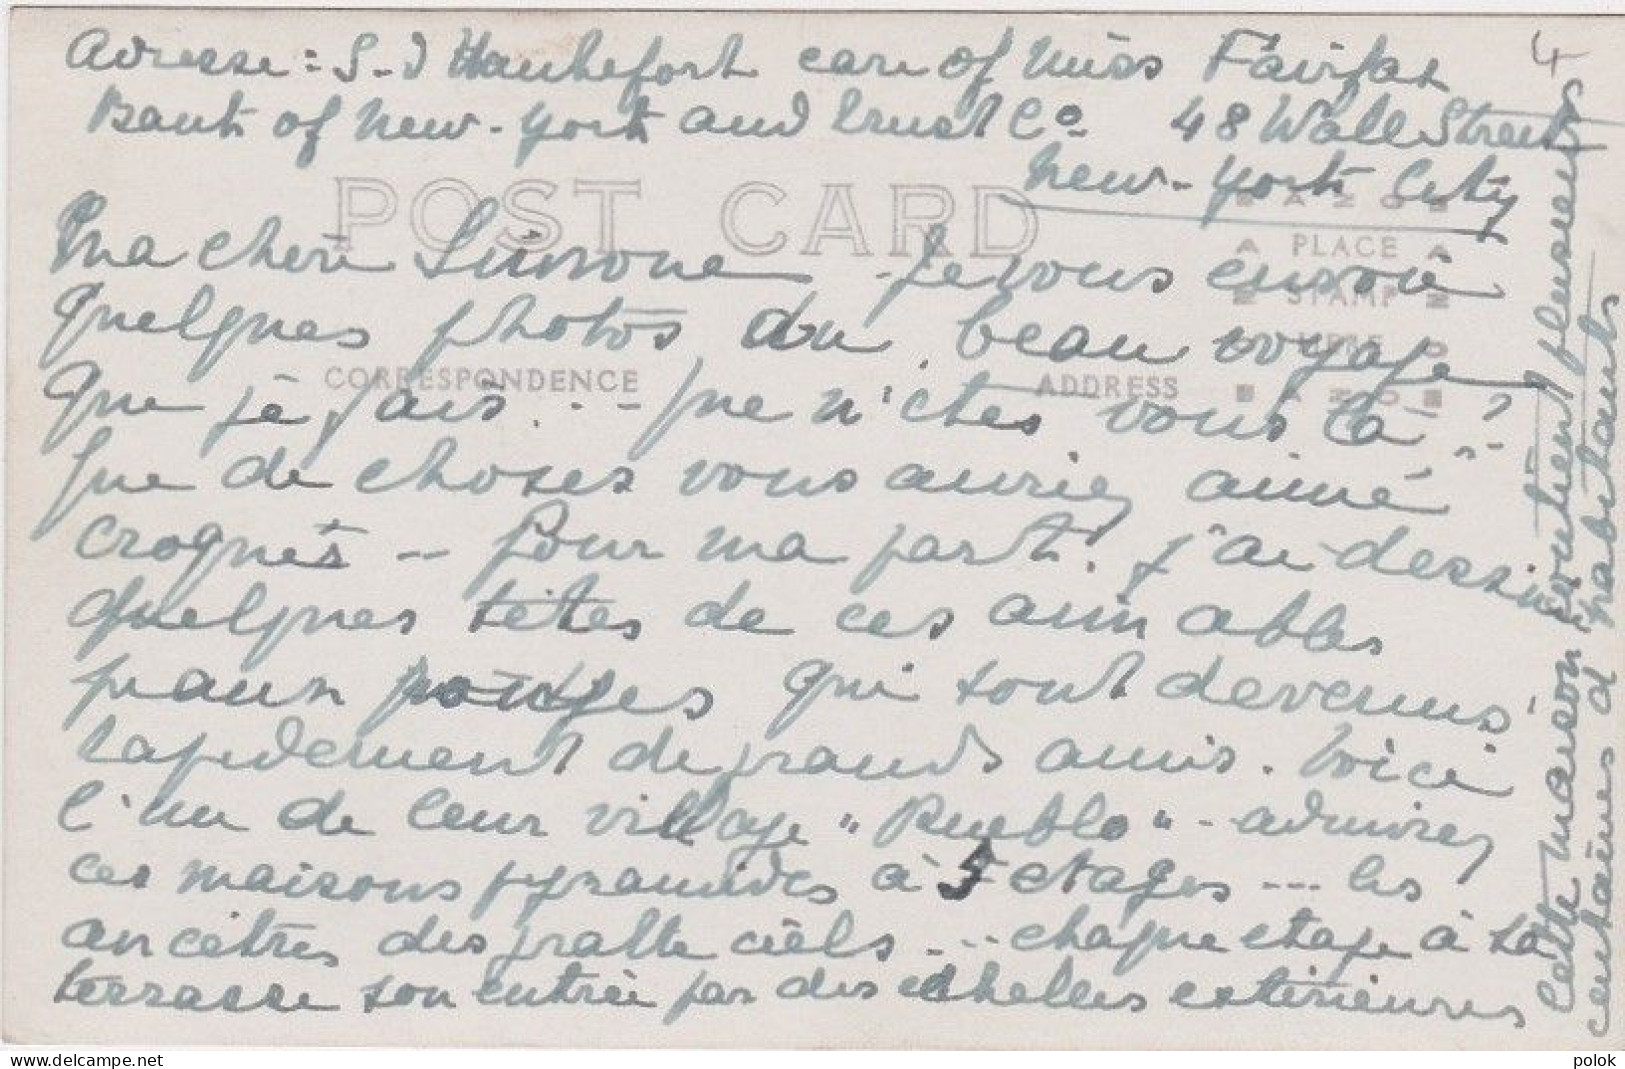 4
Adresse : S-d Hautefort care of Miss Fairfax
Bank of New-York and Trust Co 48 Wall Street
New-York City
POST CARD
AZO
PLACE
STAMP
CORRESPONDENCE
ADDRESS
Ma chère Simone - Je vous envoie
quelques photos du beau voyage
que je fais .. - que n'êtes vous là ?
Que de choses vous auriez aimé
croquer -- Pour ma part. j'ai dessiné
quelques têtes de ces aimables
peaux rouges qui sont devenus
rapidement de grands amis. Voici
l'un de leur village "Pueblo" - admirez
ces maisons pyramides à 5 étages --- les
ancêtres des gratte ciels --- chaque étage à sa
terrasse son entrée par des echelles extérieures
Cette maison contient plusieurs
centaines d'habitants
delcampe.net
polok